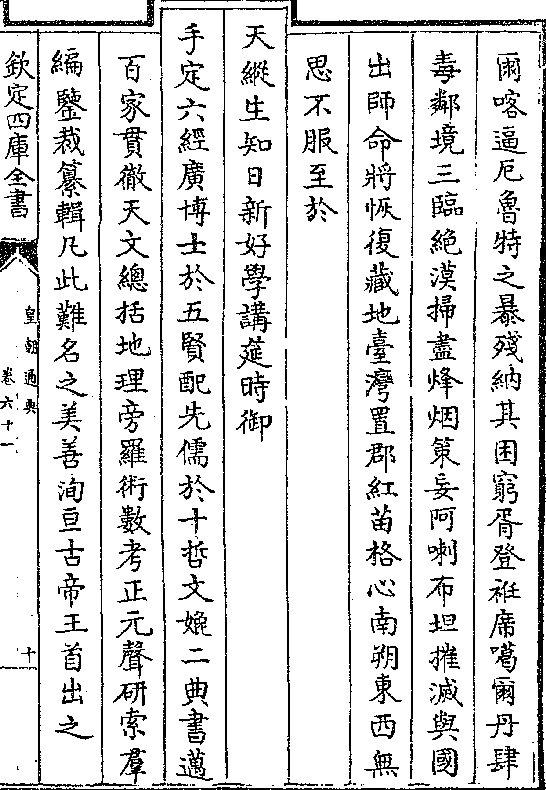 爾喀逼厄魯特之暴殘納其困窮胥登袵席噶爾丹肆
毒鄰境三臨絶漠掃盡烽烟策妄阿喇布坦摧滅與國
出師命將恢復藏地臺灣置郡紅苗格心南朔東西無
思不服至於
天縱生知日新好學講筵時御
手定六經廣博士於五賢配先儒於十哲文㛯二典書邁
百家貫徹天文總括地理旁羅術數考正元聲研索羣
編鑒裁纂輯凡此難名之美善洵亘古帝王首出之
欽定四庫全書
皇朝通典
卷六十一
十